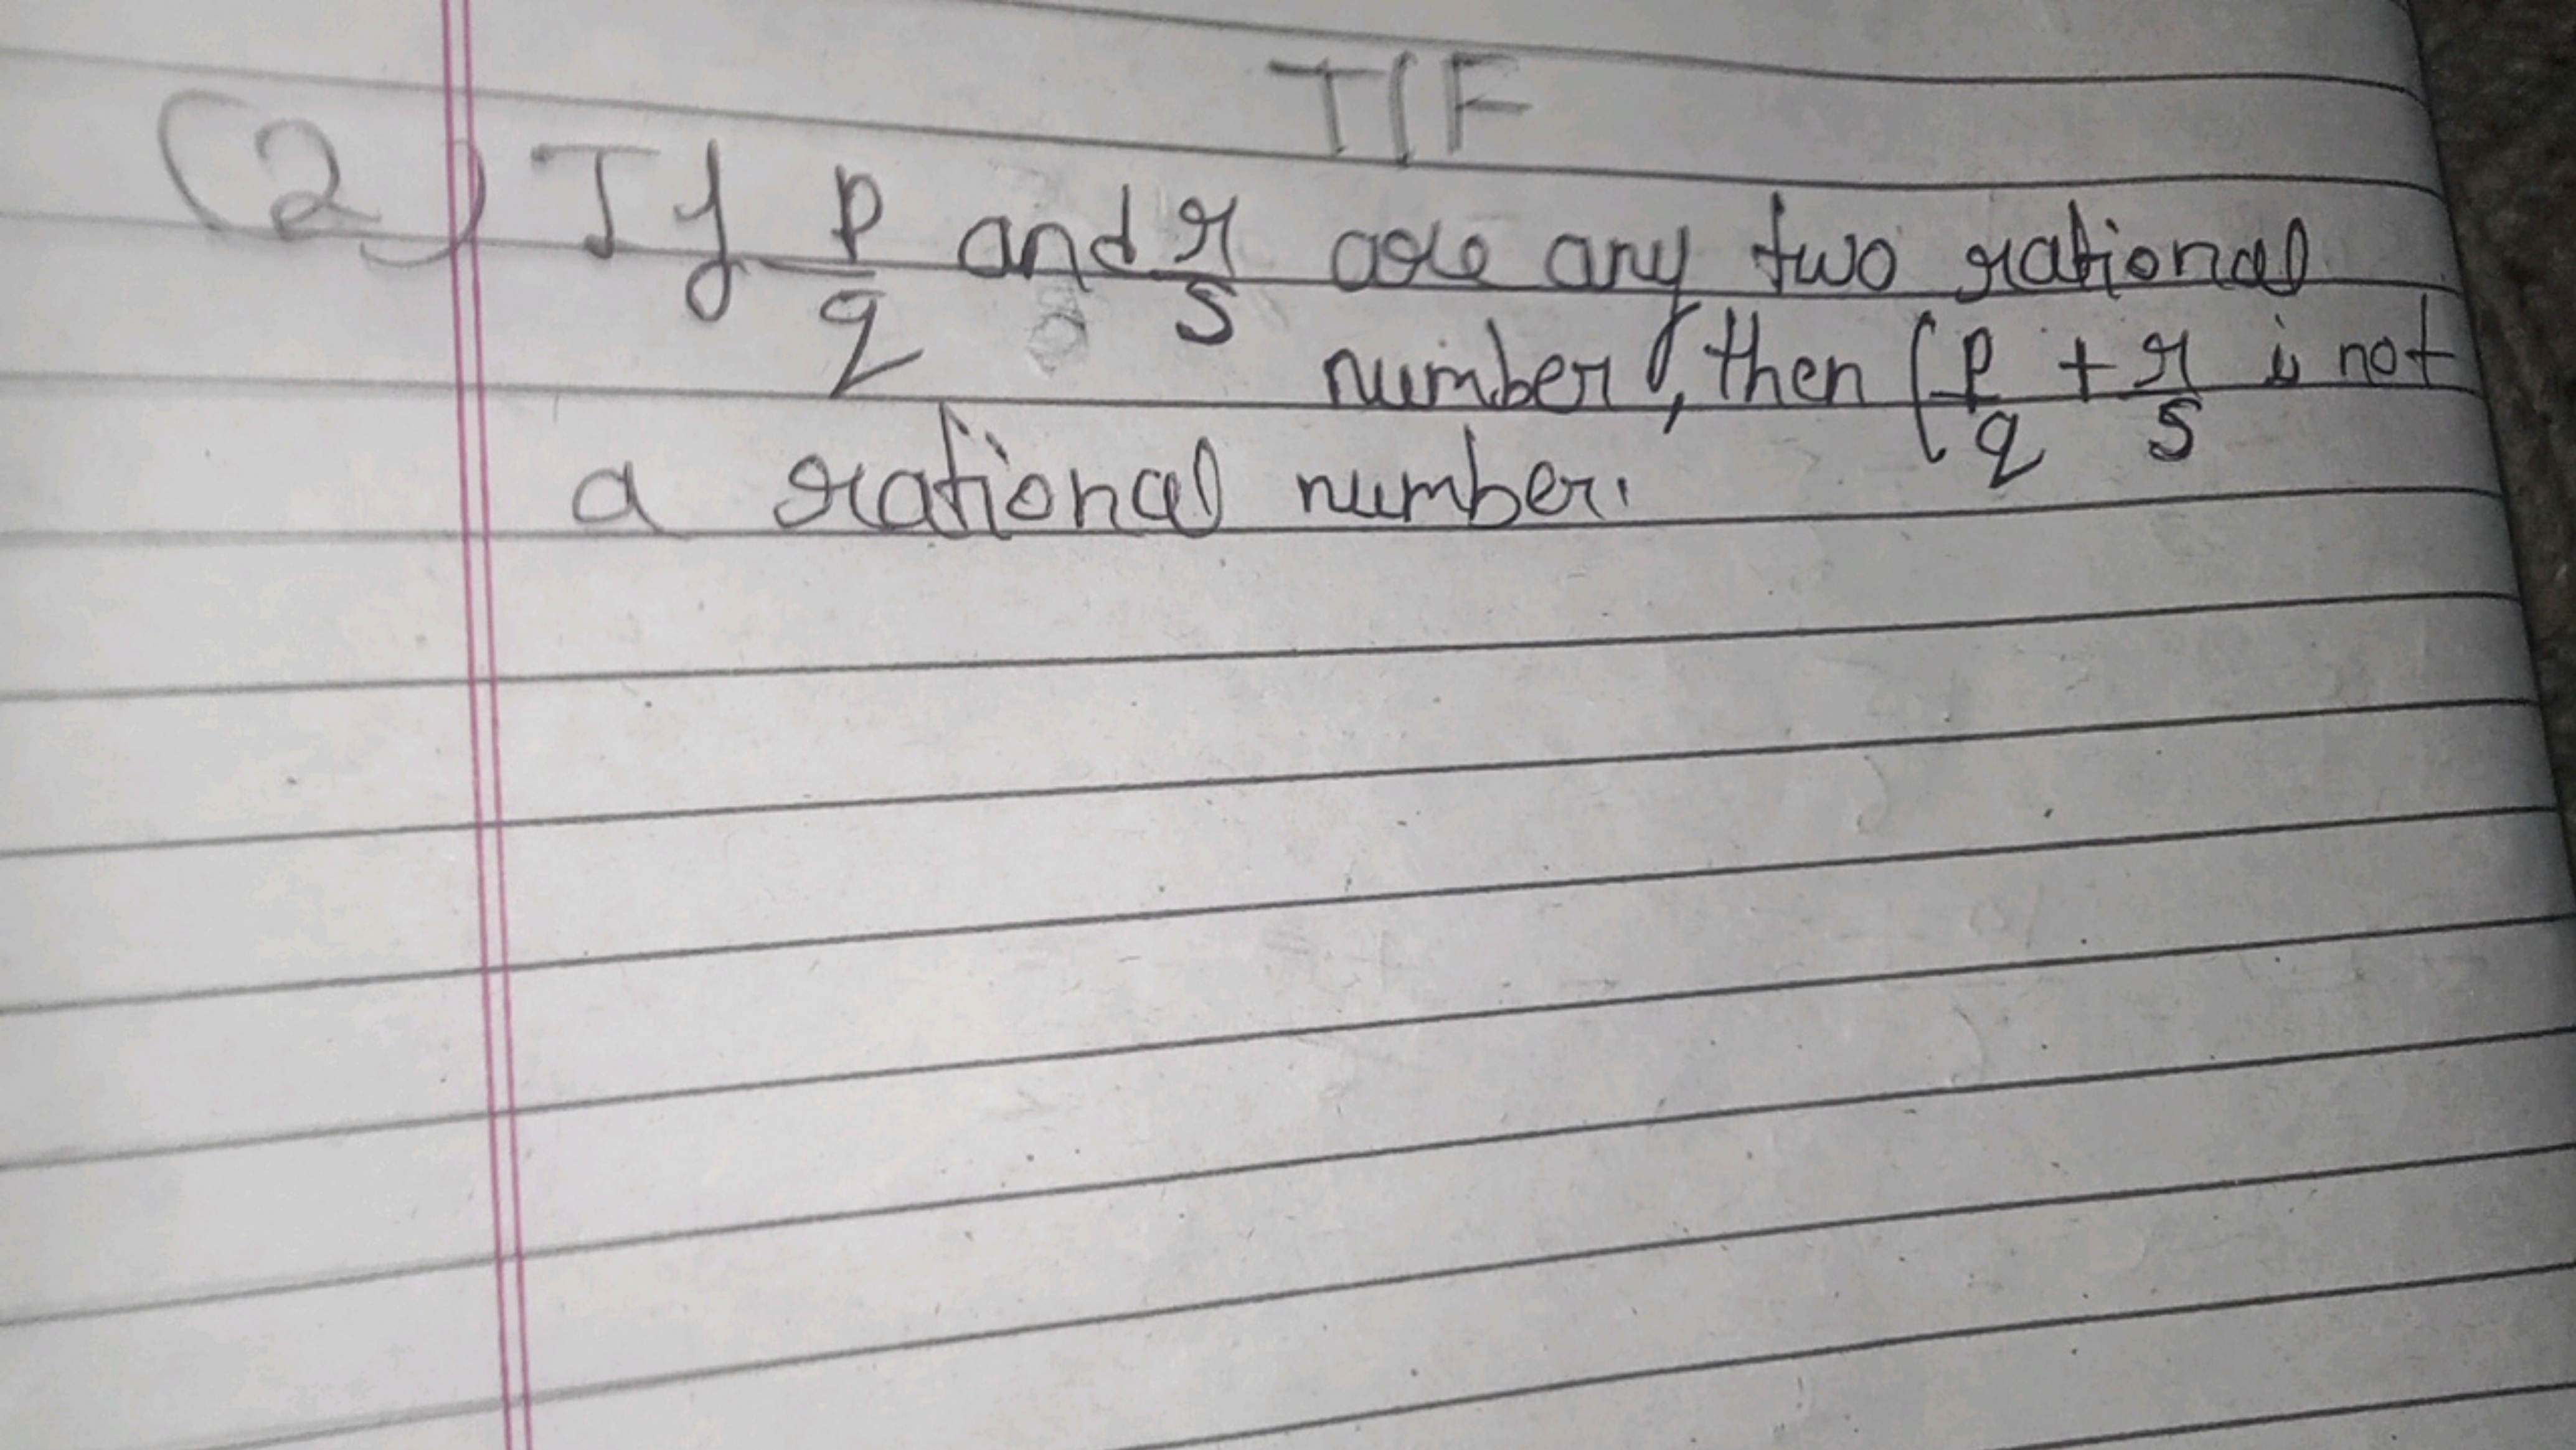 T/F
(2) If p/q and r/s are any two rational
number, then (p/q + r/s is not
a rational number.